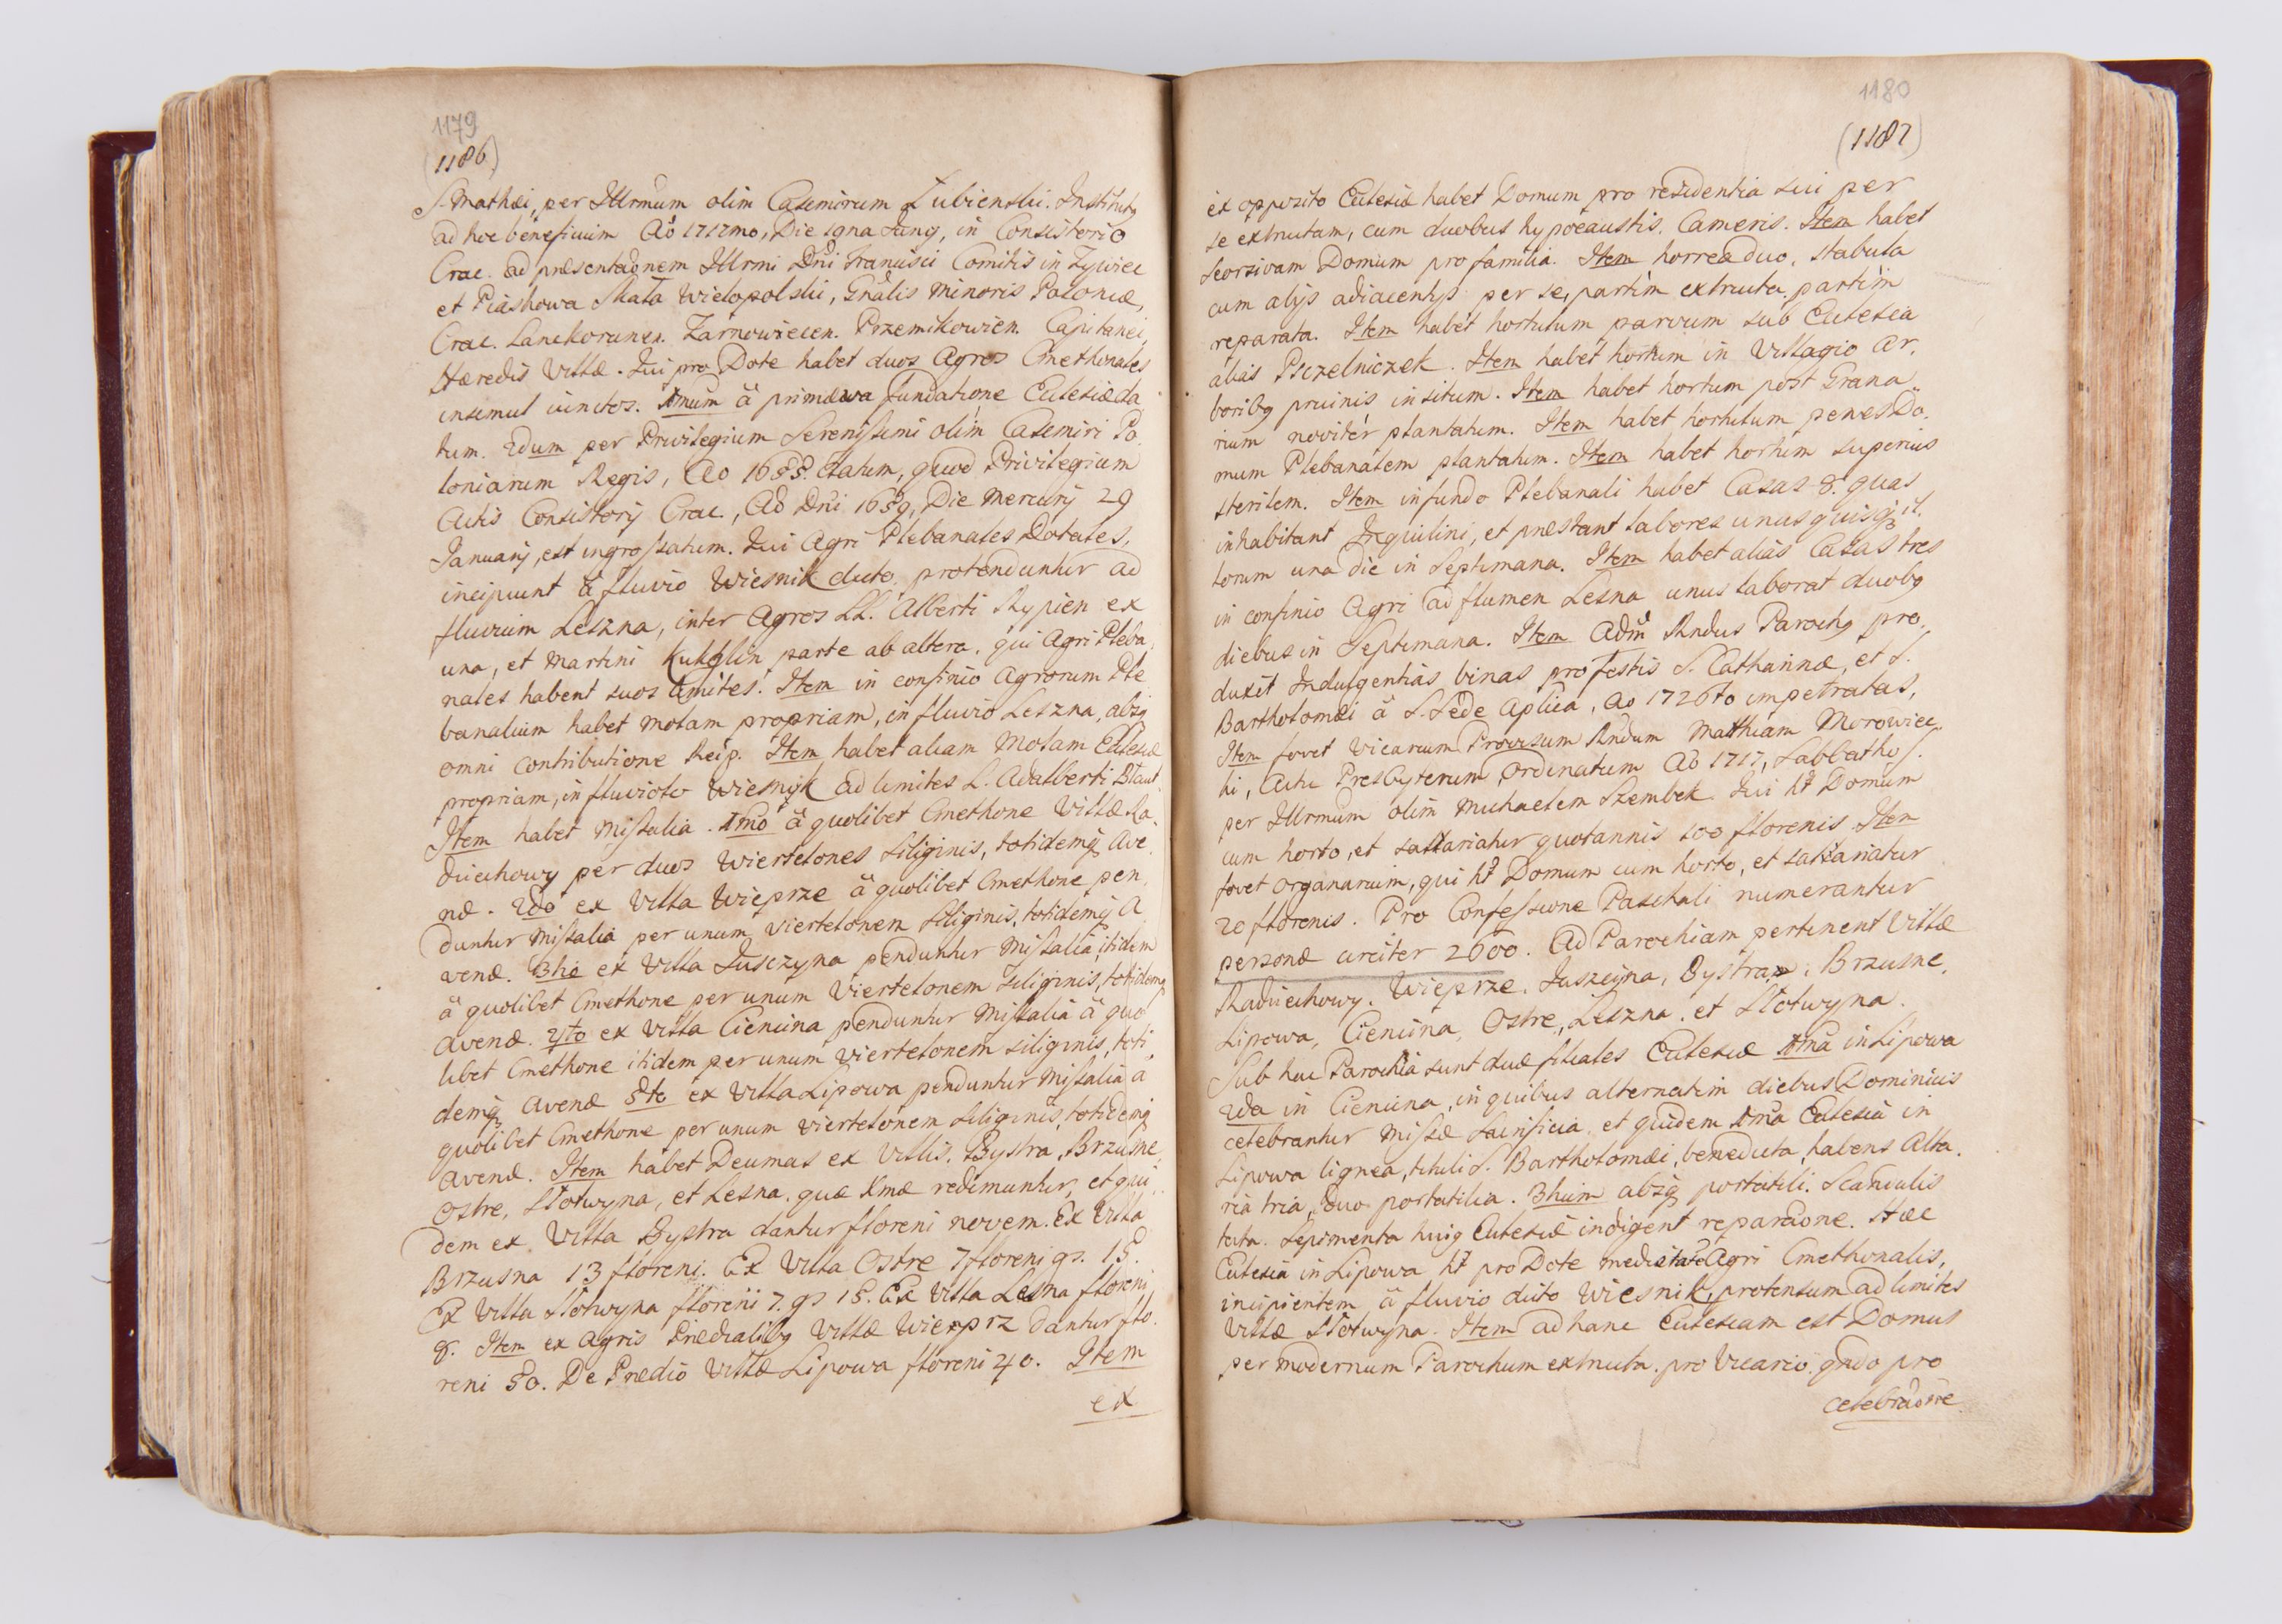 1179
(1186)
S. Mathæi, per Illrmum olim Casimirum Łubienski. Institutg
ad hoc beneficium Aō 1717mo, Die 19na Jung, in Consistorio
Crac. ad præsentaōnem Illrmi Dn̄i Francisci Comitis in Zywiec
et Piaskowa Skała Wielopolski, Gn̄alis Minoris Poloniæ,
Crac. Lanckorunen. Zarnowiecen. Przemikowien. Capitanei,
Hæredis Villæ. Qui pro Dote habet duos Agros Cmethonales
insimul iunctos. 1mum ä primæva fundatione Ecclesiæ da
tum. 2dum per Privilegium Serenissimi olim Casimiri Po
loniarum Regis, Ao datum, quod Privilegium
Actis Consistorij Crac., Aō Dn̄i 1659, Die Mercurij 29
Januarij, est ingrossatum. Qui Agri Plebanales Dotales,
incipiunt ä fluvio Wiesnik dicto, protenduntur ad
fluvium Leszna, inter Agros LL. Alberti Rypien ex
una, et Martini parte ab altera, qui Agri Pleba
nales habent suos limites. Item in confinio Agrorum Ple
banalium habet Molam propriam, in fluvio Leszna, absq
omni contributione Reip. Item habet aliam Molam Ecclesiæ
propriam, in fluviolo Wiesnik ad limites L. Adalberti
Item habet Missalia. 1mo ä quolibet Cmethone Villæ Ra
dziechowy per duos Wiertelones siliginis, totidemq Ave
næ. 2do ex Villa Wieprze ä quolibet Cmethone pen
duntur Missalia per unum viertelonem siliginis, totidemq A
venæ. 3tio ex Villa Juszczyna penduntur Missalia, itidem
ä quolibet Cmethone per unum Viertelonem siliginis, totidemq
avenæ. 4to ex Villa Ciencina penduntur Missalia ä quo
libet Cmethone itidem per unum viertelonem siliginis, toti
demq avenæ 5to ex Villa Lipowa penduntur Missalia a
quolibet Cmethone per unum viertelonem siliginis, totidemq
avenæ. Item habet Decimas ex Villis. Bystra, Brzusne,
Ostre, Słotwyna, et Lesna. quæ Xmæ redimuntur, et qui
dem ex Villa Bystra dantur floreni novem. Ex Villa
Brzusna 13 floreni. Ex Villa Ostre 7 floreni gs. 15.
Ex Villa Słotwyna floreni 7. gs 15. Ex Villa Lesna floreni
8. Item ex Agris Prædialibg Villæ Wieprz dantur flo.
reni 50. De Prædio Villæ Lipowa floreni 40. Item
ex
1180
(1187)
ex opposito Ecclesiæ habet Domum pro residentia sui per
se extructam, cum duobus hypocaustis. Cameris. Item habet
seorsivam Domum pro familia. Item horrea duo, stabula
cum alijs adiacentijs per se, partim extructa, partim
reparata. Item habet hortulum parvum sub Ecclesia
alias Pszczelniczek. Item habet hortum in Villagio Ar,
boribg pruinis insitum. Item habet hortum post Grana
rium noviter plantatum. Item habet hortulum penes Do,
mum Plebanalem plantatum. Item habet hortum superius
sterilem. Item in fundo Plebanali habet Casas 8. quas
inhabitant Inquilini, et præstant labores unusquisq il.
lorum una die in Septimana. Item habet alias Casas tres
in confinio Agri ad flumen Lesna unus laborat duobg
diebus in Septimana. Item Adm̄ Rndus Parochg pro,
duxit Indulgentias binas pro festis S. Catharinæ, et S.
Bartholomæi ä S. Sede Aplica, Ao 1726to impetratas,
Item fovet Vicarium Provisum Rndum Matthiam Morowiec
ki, Actu Presbyterum, Ordinatum Aō 1717, Sabbatho S.
per Illrmum olim Michaelem Szembek. Qui ht Domum
cum horto, et sallariatur quotannis 100 florenis. Item
fovet Organarium, qui ht Domum cum horto, et sallariatur
20 florenis. Pro Confessione Paschali numerantur
personæ circiter 2600. Ad Parochiam pertinent Villæ
Radziechowy. Wieprze. Juszczyna, Bystra, Brzusne,
Lipowa, Ciencina, Ostre, Leszna. et Słotwyna.
Sub hac Parochia sunt duæ filiales Ecclesiæ 1ma in Lipowa
2da in Ciencina, in quibus alternatim diebus Dominicis
celebrantur Missæ Sacrificia. et quidem 1ma Ecclesia in
Lipowa lignea, tituli S. Bartholomæi, benedicta, habens Alta,
ria tria, duo portatilia. 3tium absq portatili. Scandulis
tecta. Sepimenta huig Ecclesiæ indigent reparaōne. Hæc
Ecclesia in Lipowa ht pro Dote Agri Cmethonalis,
incipientem ä fluvio dicto Wiesnik, protensum ad limites
Villæ Słotwyna. Item ad hanc Ecclesiam est Domus
per modernum Parochum extructa. pro Vicario. qn̄do pro
celebraōne